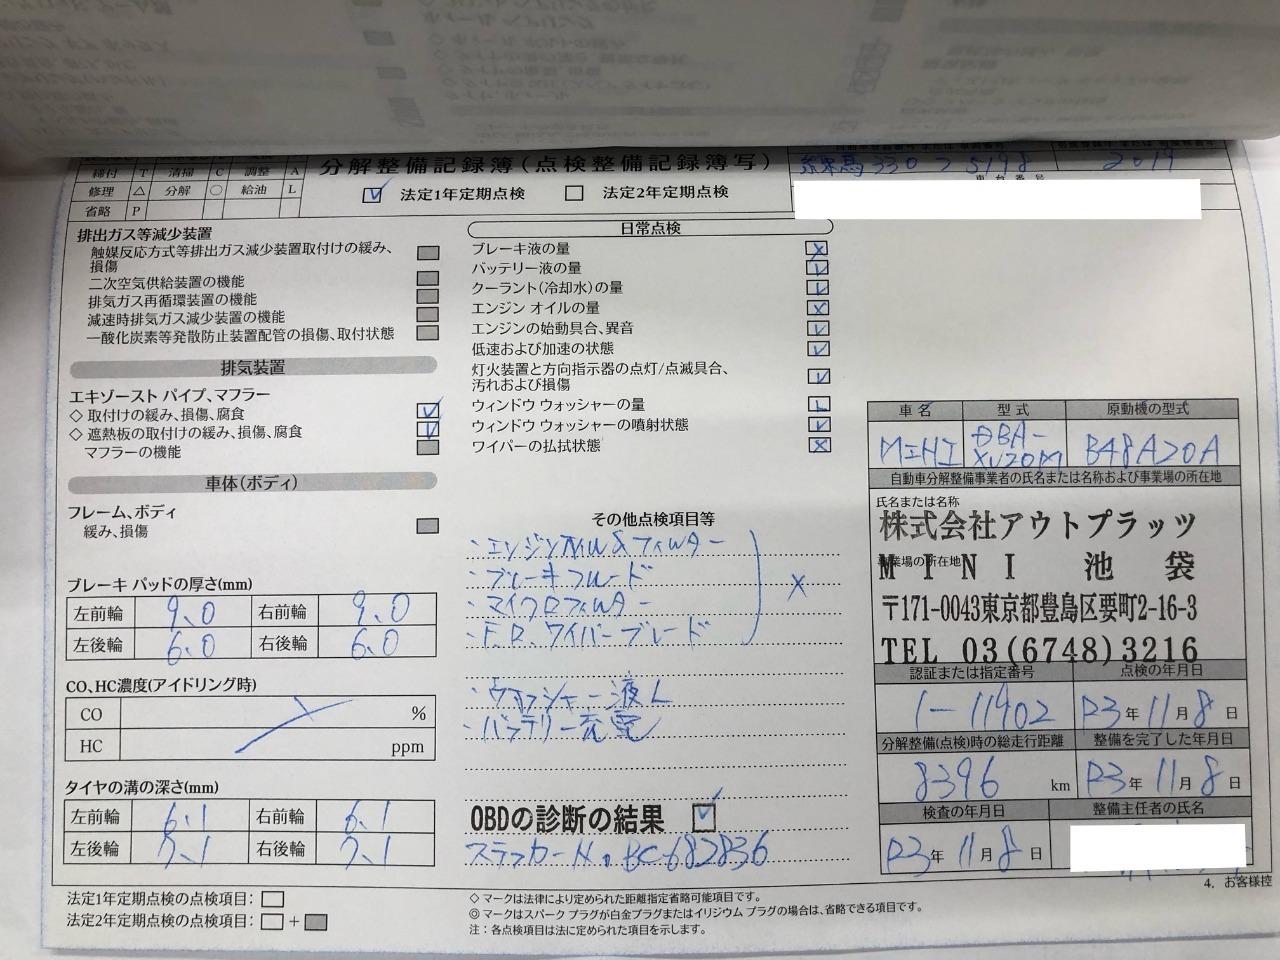 締付 T 清掃 C 調整 A
修理 △ 分解 ○ 給油 L
省略 P
分解整備記録簿(点検整備記録簿写)
法定1年定期点検 法定2年定期点検
練馬 330 5198
2019
車台番号
排出ガス等減少装置
触媒反応方式等排出ガス減少装置取付けの緩み、
損傷
二次空気供給装置の機能
排気ガス再循環装置の機能
減速時排気ガス減少装置の機能
一酸化炭素等発散防止装置配管の損傷、取付状態
排気装置
エキゾースト パイプ、マフラー
◇ 取付けの緩み、損傷、腐食
◇ 遮熱板の取付けの緩み、損傷、腐食
マフラーの機能
車体(ボディ)
フレーム、ボディ
緩み、損傷
ブレーキ パッドの厚さ(mm)
左前輪 9.0 右前輪 9.0
左後輪 6.0 右後輪 6.0
CO、HC濃度(アイドリング時)
CO %
HC ppm
タイヤの溝の深さ(mm)
左前輪 6.1 右前輪 6.1
左後輪 7.1 右後輪 7.1
法定1年定期点検の点検項目:
法定2年定期点検の点検項目: +
日常点検
ブレーキ液の量 X
バッテリー液の量
クーラント(冷却水)の量
エンジン オイルの量 X
エンジンの始動具合、異音
低速および加速の状態
灯火装置と方向指示器の点灯/点滅具合、
汚れおよび損傷
ウィンドウ ウォッシャーの量 L
ウィンドウ ウォッシャーの噴射状態
ワイパーの払拭状態 X
その他点検項目等
・エンジンオイル&フィルター
・ブレーキフルード
・マイクロフィルター
・F.R.ワイパーブレード
X
・ウォッシャー液 L
・バッテリー充電
OBDの診断の結果
ステッカーNo BC682836
◇ マークは法律により定められた距離指定省略可能項目です。
◎ マークはスパーク プラグが白金プラグまたはイリジウム プラグの場合は、省略できる項目です。
注:各点検項目は法に定められた項目を示します。
車名 型式 原動機の型式
MINI DBA-XU20M B48A20A
自動車分解整備事業者の氏名または名称および事業場の所在地
氏名または名称
株式会社アウトプラッツ
事業場の所在地
MINI 池袋
〒171-0043東京都豊島区要町2-16-3
TEL 03(6748)3216
認証または指定番号 点検の年月日
1-11402 R3年11月8日
分解整備(点検)時の総走行距離 整備を完了した年月日
8396 km R3年11月8日
検査の年月日 整備主任者の氏名
R3年11月8日
4. お客様控